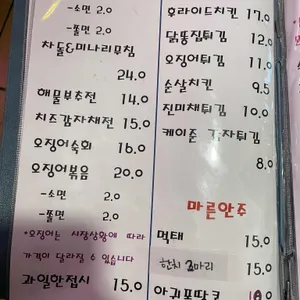 -소면 2.0
-쫄면 2.0
차돌&미나리무침
24.0
해물부추전 14.0
치즈감자채전 15.0
오징어숙회 16.0
오징어볶음 20.0
-소면 2.0
-쫄면 2.0
*오징어는 시장상황에 따라
가격이 달라질 수 있습니다
과일한접시 15.0
후라이드치킨 17.0
닭똥집튀김 12.0
오징어튀김 11.0
순살치킨 9.5
진미채튀김 10.0
케이준 감자튀김
8.0
마른안주
먹태 15.0
한치 2마리 15.0
아귀포땅콩